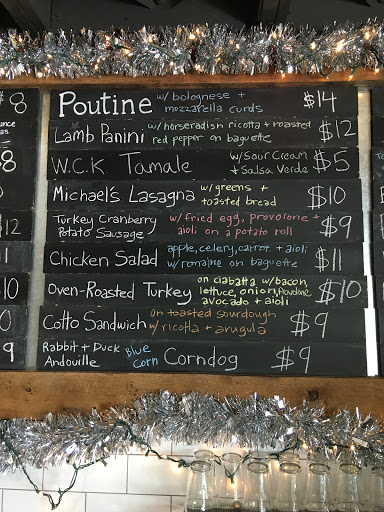 8
Poutine w/ bolognese +
mozzarella curds $14
Lamb Panini w/horseradish ricotta + roasted
red pepper on baguette $12
8
W.C.K Tamale w/Sour Cream
+ Salsa Verde $5
Michael's Lasagna w/greens +
toasted bread $10
12
Turkey Cranberry
Potato Sausage w/ fried egg, provolone +
aioli on a potato roll $9
11
Chicken Salad apple, celery, carrot + aioli
w/ romaine on baguette $11
10
Oven-Roasted Turkey on ciabatta w/bacon,
lettuce, onion,
avocado + aioli $10
0
Cotto Sandwich on toasted sourdough
w/ricotta + arugula $9
9
Rabbit + Duck
Andouille Blue
Corn Corndog $9